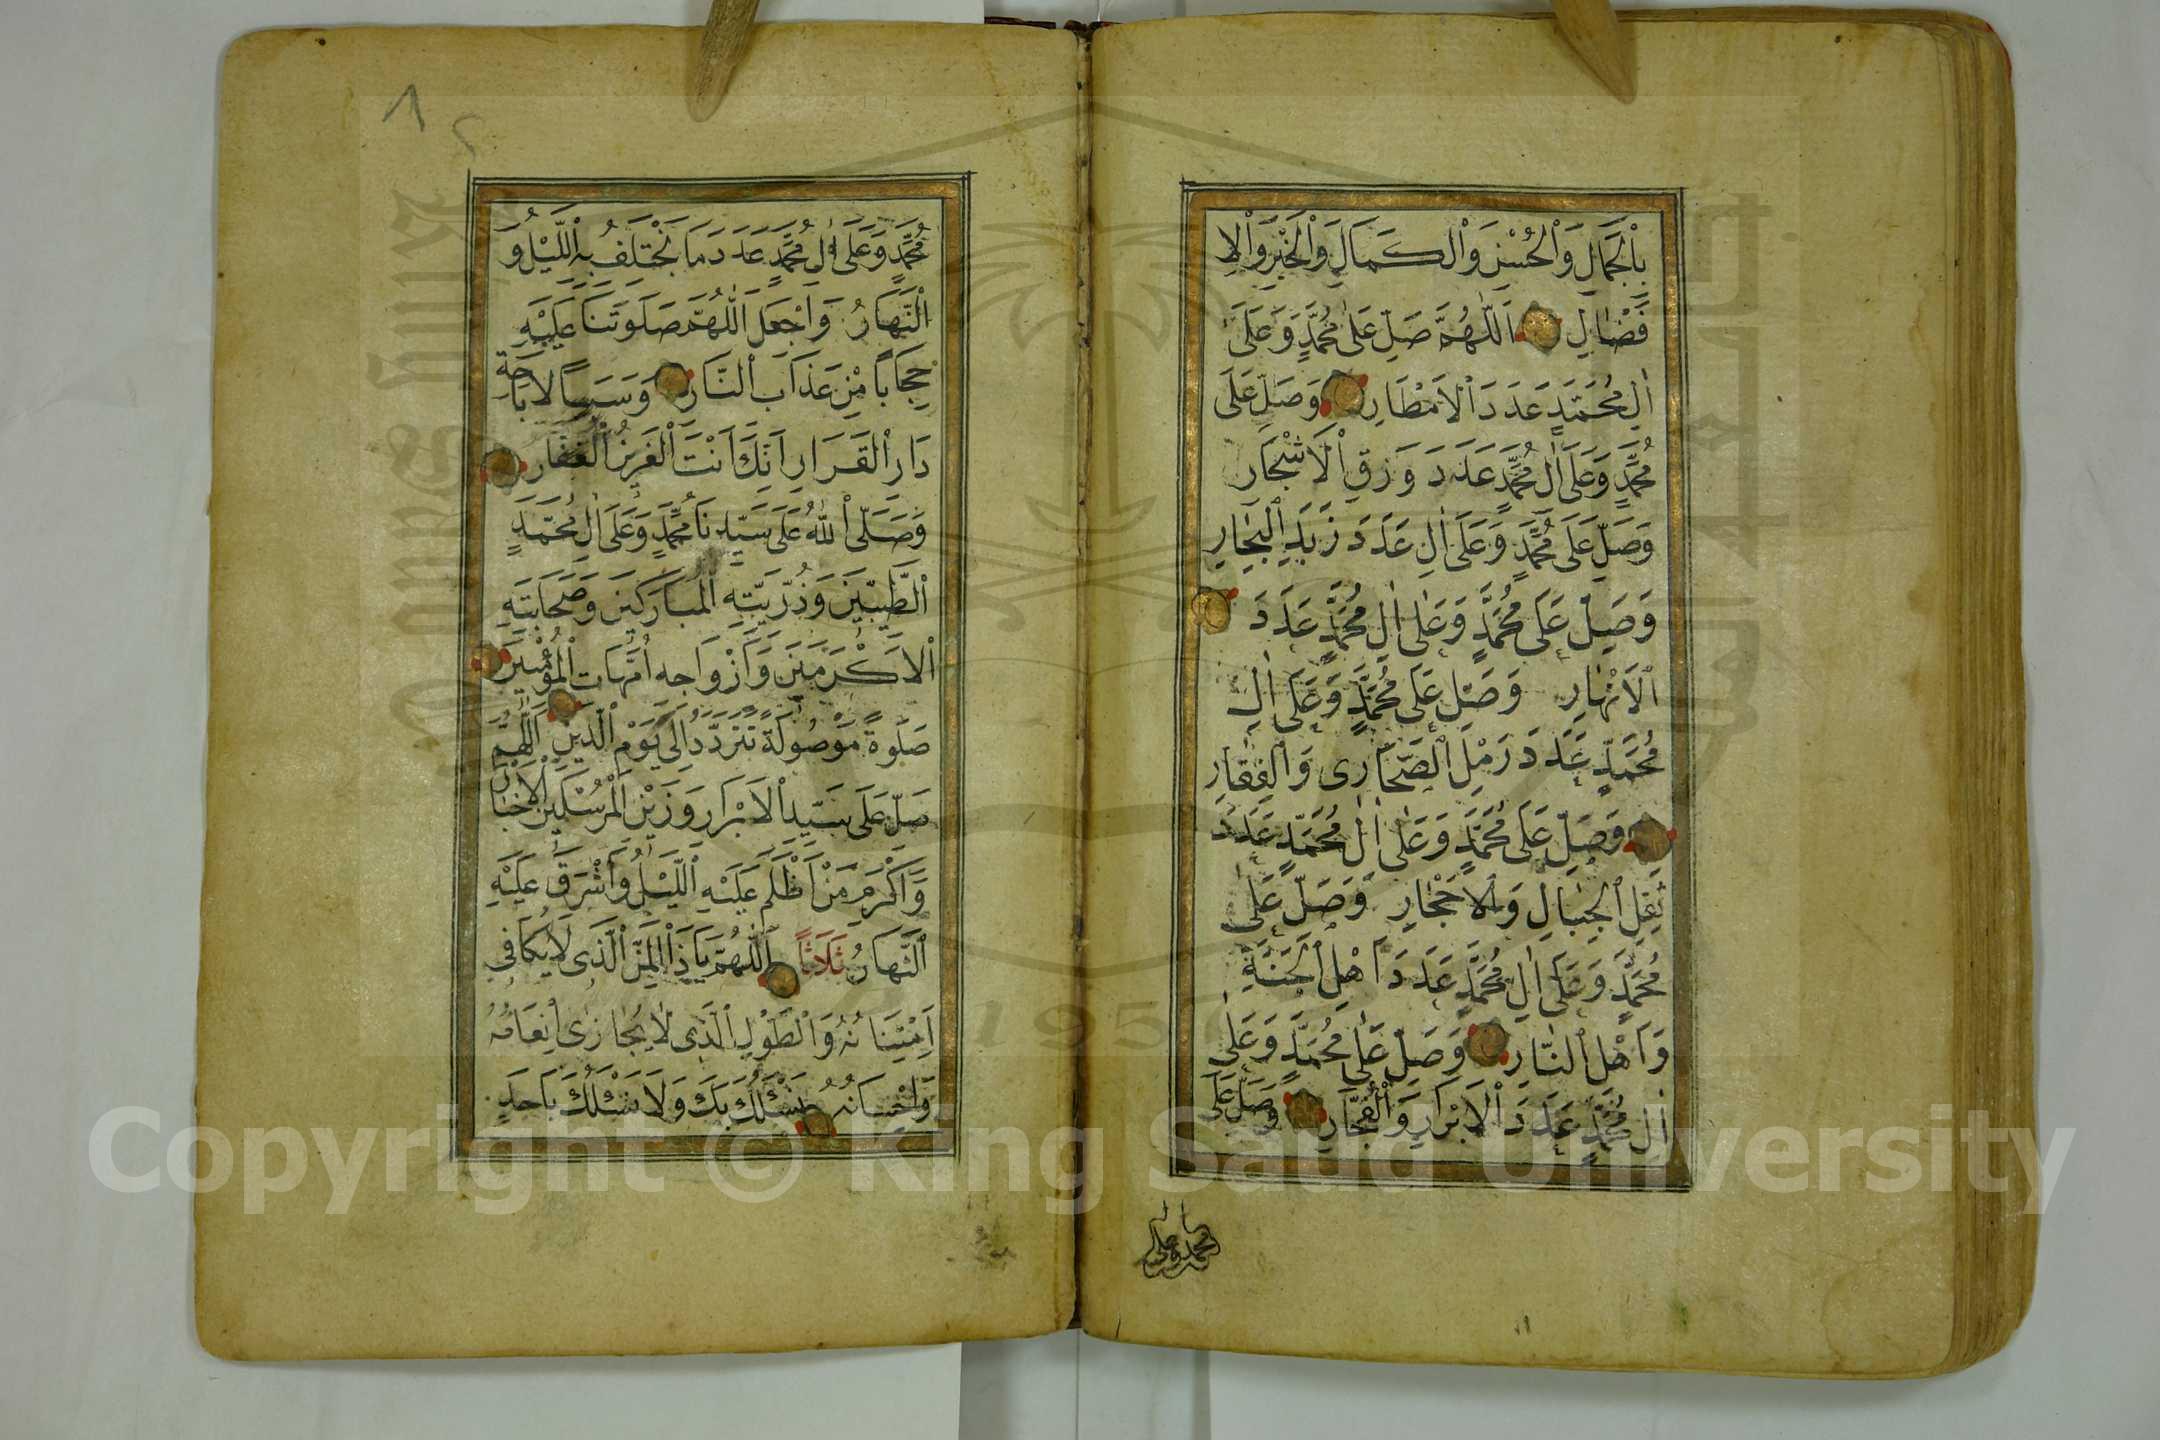 بِاْلجَمَالِ وَاْلحُسْنِ وَاْلكَمَالِ وَاْلخَيْرِ وَاْلاِ
فْضَالِ اَللّٰهُمَّ صَلِّ عَلٰى مُحَمَّدٍ وَعَلَى
اٰلِ مُحَمَّدٍ عَدَدَ اْلاَمْطَارِ وَصَلِّ عَلَى
مُحَمَّدٍ وَعَلَى اٰلِ مُحَمَّدٍ عَدَدَ وَرَقِ اْلاَشْجَارِ
وَصَلِّ عَلَى مُحَمَّدٍ وَعَلَى اٰلِ عَدَدَ زَبَدِ اْلبِحَارِ
وَصَلِّ عَلَى مُحَمَّدٍ وَعَلٰى اٰلِ مُحَمَّدٍ عَدَدَ
اْلاَنْهَارِ وَصَلِّ عَلَى مُحَمَّدٍ وَعَلَى اٰلِ
مُحَمَّدٍ عَدَدَ رَمْلِ الصَّحَارٰى وَاْلقِفَارِ
وَصَلِّ عَلَى مُحَمَّدٍ وَعَلٰى اٰلِ مُحَمَّدٍ عَدَدَ
ثِقِلِ اْلجِبَالِ وَاْلاَحْجَارِ وَصَلِّ عَلٰى
مُحَمَّدٍ وَعَلَى اٰلِ مُحَمَّدٍ عَدَدَ اَهْلِ اْلجَنَّةِ
وَاَهْلِ النَّارِ وَصَلِّ عَلٰى مُحَمَّدٍ وَعَلٰى
اٰلِ مُحَمَّدٍ عَدَدَ اْلاَبْرَارِ وَاْلفُجَّارِ وَصَلِّ عَلَى
محمد وعلى
مُحَمَّدٍ وَعَلَى اٰلِ مُحَمَّدٍ عَدَدَ مَا يَخْتَلِفُ بِهِ اللَّيْلُ وَ
النَّهَارُ وَاجْعَلِ اللّٰهُمَّ صَلَوتَنَا عَلَيْهِ
حِجَابًا مِنْ عَذَابِ النَّارِ وَسَبَبًا لاِبَاحَةِ
دَارِ اْلقَرَارِ اِنَّكَ اَنْتَ اْلعَزِيزُ اْلغَفَّارُ
وَصَلَّى اللهُ عَلَى سَيِّدِنَا مُحَمَّدٍ وَعَلَى اٰلِ مُحَمَّدٍ
الطَّيِّبِينَ وَذُرِّيَّتِهِ اْلمُبَارَكِينَ وَصَحَابَتِهِ
اْلاَكْرَمِينَ وَاَزْوَاجِهِ اُمَّهَاتِ اْلمُؤْمِنِينَ
صَلٰوةً مَوْصُولَةً تَتَرَدَّدُ اِلَى يَوْمِ الدِّينِ اَللّٰهُمَّ
صَلِّ عَلَى سَيِّدِ اْلاَبْرَارِ وَزَيْنِ اْلمُرْسَلِينَ اْلاَخْيَارِ
وَاَكْرَمِ مَنْ اَظْلَمَ عَلَيْهِ اللَّيْلُ وَاَشْرَقَ عَلَيْهِ
النَّهَارُ ثَلاَثًا اَللّٰهُمَّ يَاذَا اْلمَنِّ الَّذِى لاَيُكَافِى
اِمْتِنَانُهُ وَالطَّوْلِ الَّذِى لاَيُجَازٰى اِنْعَامُهُ
وَاِحْسَانُهُ نَسْئَلُكَ بِكَ وَلاَ نَسْئَلُكَ بِاَحَدٍ
Copyright © King Saud University
1957